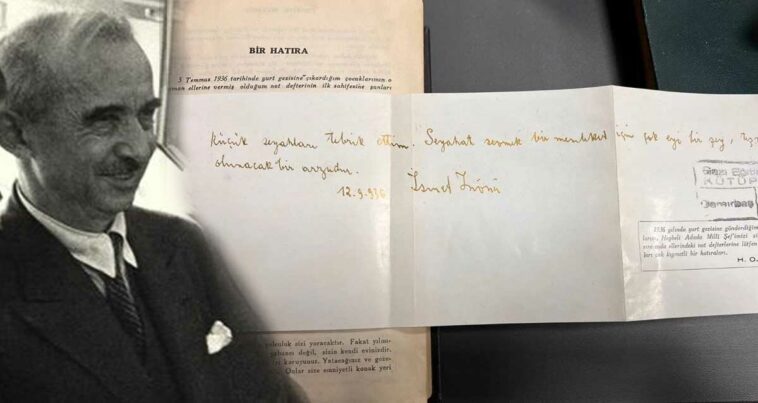 BİR HATIRA
3 Temmuz 1936 tarihinde yurt gezisine çıkardığım çocuklarımın o
ellerine vermiş olduğum not defterinin ilk sahifesine şunları
küçük seyyahları tebrik ettim. Seyahat sevmek bir memleket için çok eyi bir şey,
olunacak bir arzudur.
12.9.936 İsmet İnönü
KÜTÜP
Demirbaş
1936 yılında yurt gezisine gönderdiğim
Heybeli Adada Millî Şef'imizi zi
ellerindeki not defterlerine lûtfen
ları çok kıymetli bir hatıraları.
H. O.
yolculuk sizi yoracaktır. Fakat yılma-
yabancı değil, sizin kendi evinizdir.
koruyunuz. Yatacağınız ve geze-
Onlar size emniyetli konak yeri